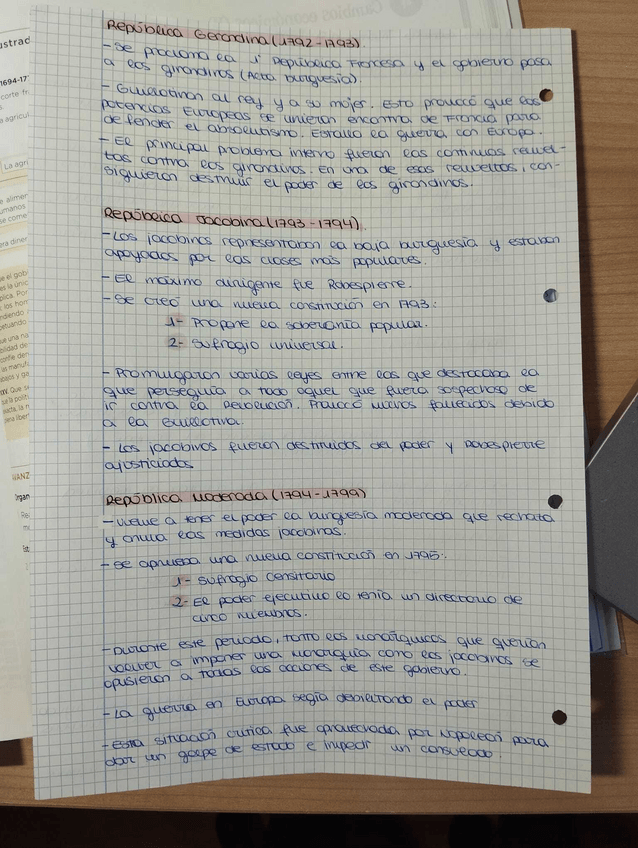 República Gerondina (1792-1793)
- Se proclama la 1ª República Francesa y el gobierno pasa
a los girondinos (Alta burguesía).
- Guillotinan al rey y a su mujer. Esto provocó que las
potencias Europeas se unieran encontra de Francia para
defender el absolutismo. Estalla la guerra con Europa.
- El principal problema interno fueron las continuas revuel-
tas contra los girondinos. en una de esas revueltas, con-
siguieron destruir el poder de los girondinos.
República Jacobina (1793-1794)
- Los jacobinos representaban la baja burguesía y estaban
apoyados por las clases más populares.
- El máximo dirigente fue Robespierre.
- Se creó una nueva constitución en 1793:
1- Propone la soberanía popular.
2- Sufragio universal.
- Promulgaron varias leyes entre las que destacaba la
que perseguía a todo aquel que fuera sospechoso de
ir contra la Revolución. Provocó muchos fallecidos debido
a la Guillotina.
- Los jacobinos fueron destituidos del poder y Robespierre
ajusticiados
República Moderada (1794-1799)
- Vuelve a tener el poder la burguesía moderada que rechaza
y anula las medidas jacobinas.
- Se aprueba una nueva constitución en 1795:
1- Sufragio censitario
2- El poder ejecutivo lo tenía un directorio de
cinco miembros.
- Durante este periodo, tanto los monárquicos que querían
volver a imponer una monarquía como los jacobinos se
opusieron a todas las acciones de este gobierno.
- La guerra en Europa segía debilitando el poder
- Esta situación crítica fue aprovechada por Napoleón para
dar un golpe de estado e impedir un consulado.